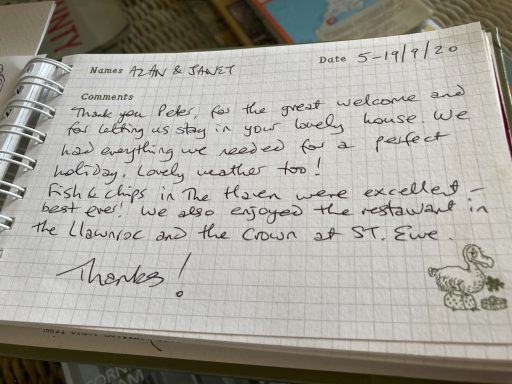 Names AZAN & JANET Date 5-19/9/20
Comments
Thank you Peter, for the great welcome and
for letting us stay in your lovely house. We
had everything we needed for a perfect
holiday. Lovely weather too!
Fish & chips in The Haven were excellent –
best ever! We also enjoyed the restaurant in
the Llawnroc and the Crown at ST. Ewe.
Thanks!